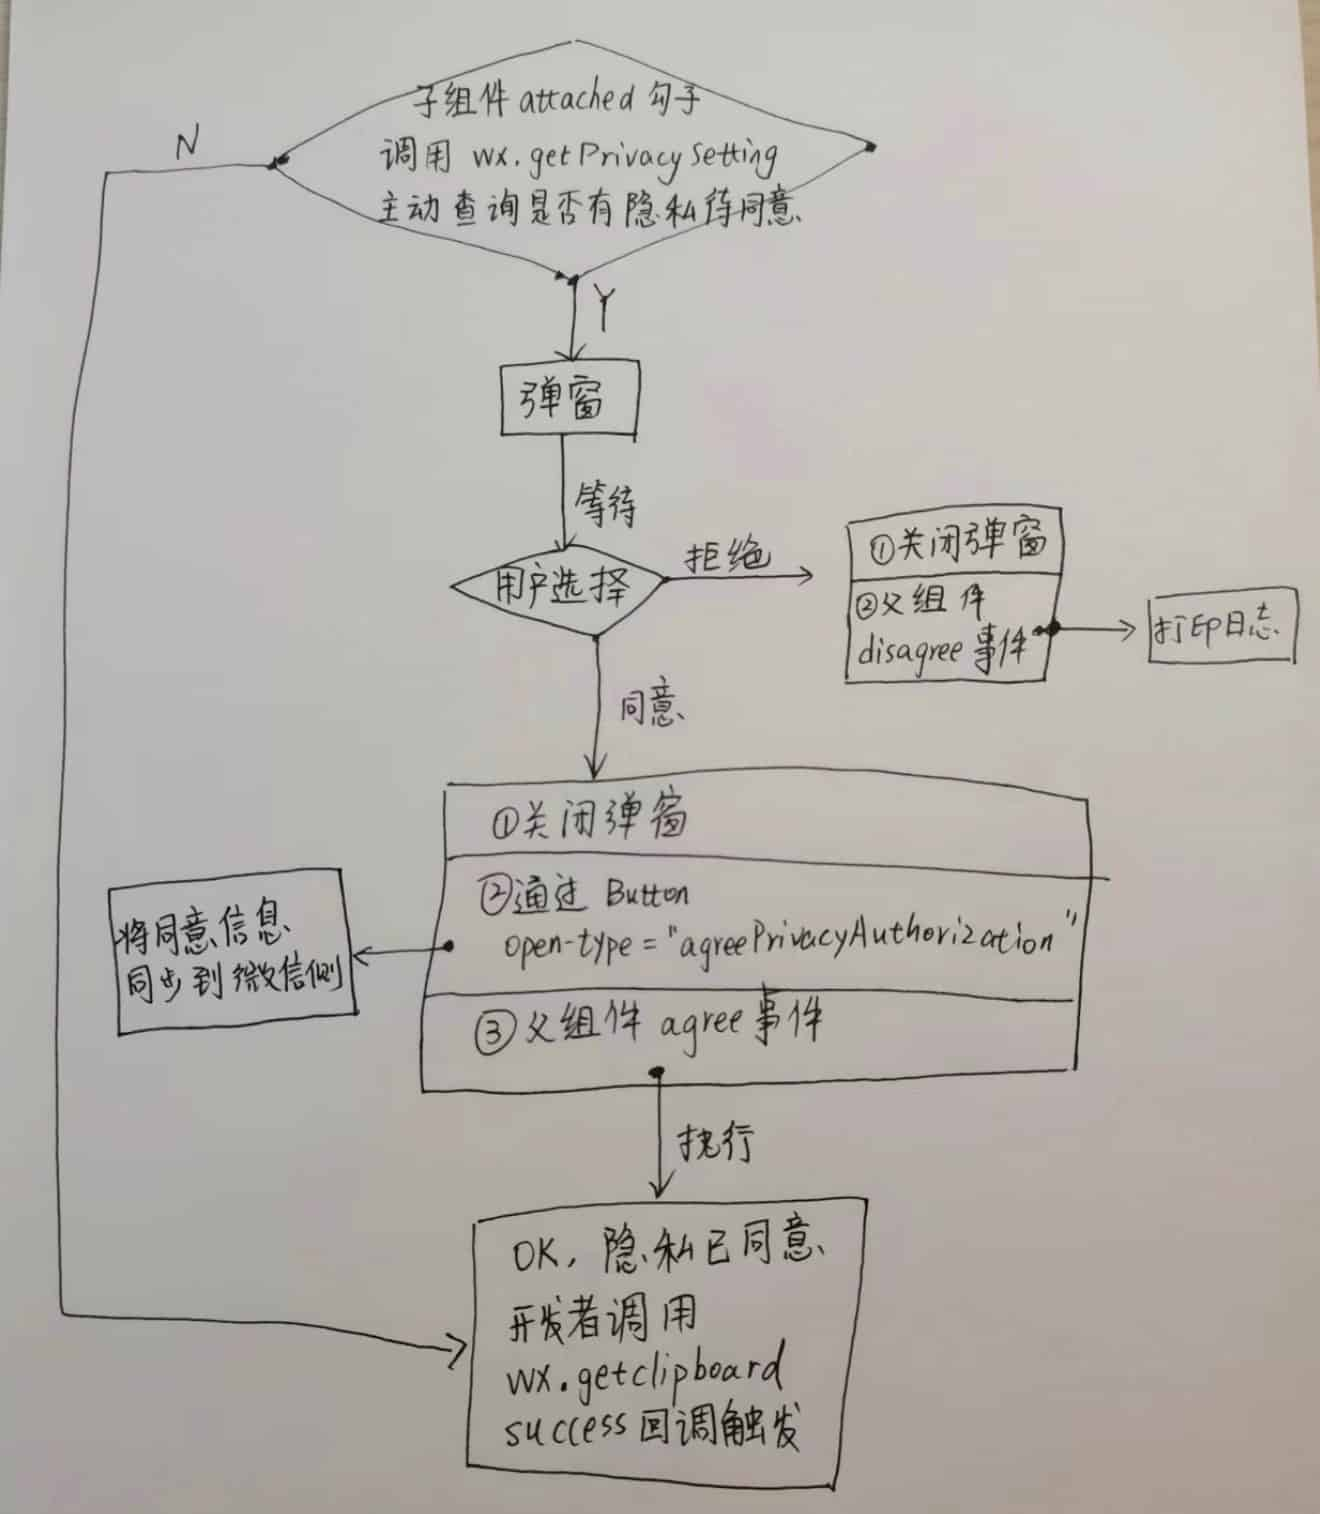 子组件 attached 勾子
调用 wx.getPrivacySetting
主动查询是否有隐私待同意
N
Y
弹窗
等待
用户选择
拒绝
①关闭弹窗
②父组件
disagree事件
打印日志
同意
①关闭弹窗
②通过 Button
open-type="agreePrivacyAuthorization"
③父组件 agree事件
将同意信息
同步到微信侧
执行
OK, 隐私已同意
开发者调用
wx.getclipboard
success回调触发